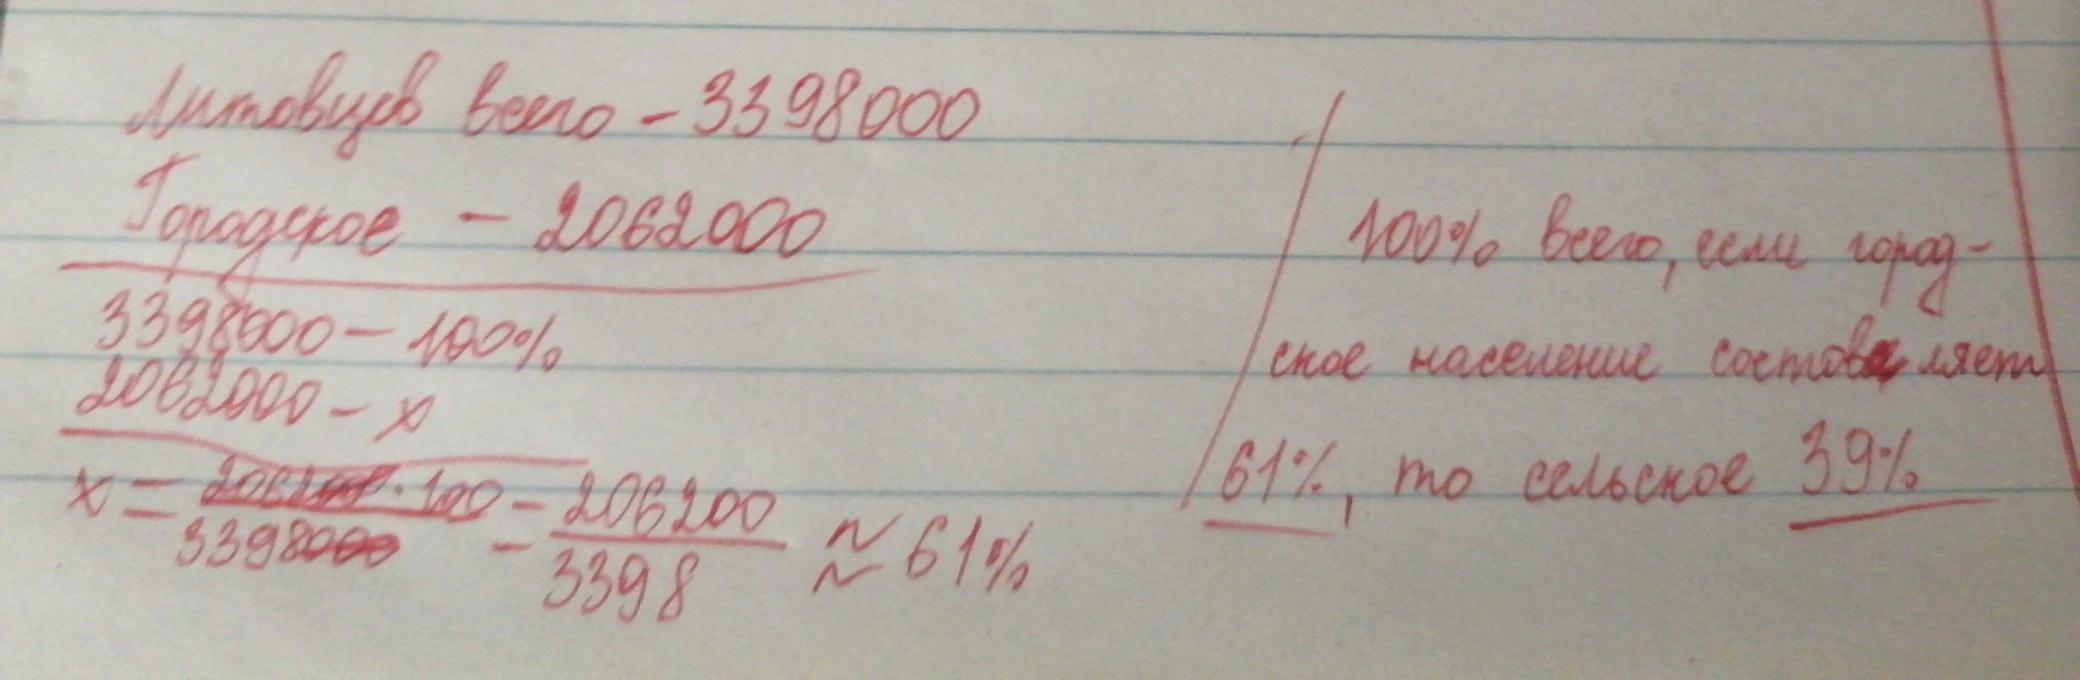 Литовцев всего - 3398000
Городское - 2062000
3398000 - 100%
2062000 - х
х = 2062000 · 100 / 3398000 = 206200 / 3398 ≈ 61%
100% всего, если город-
ское население составляет
61%, то сельское 39%